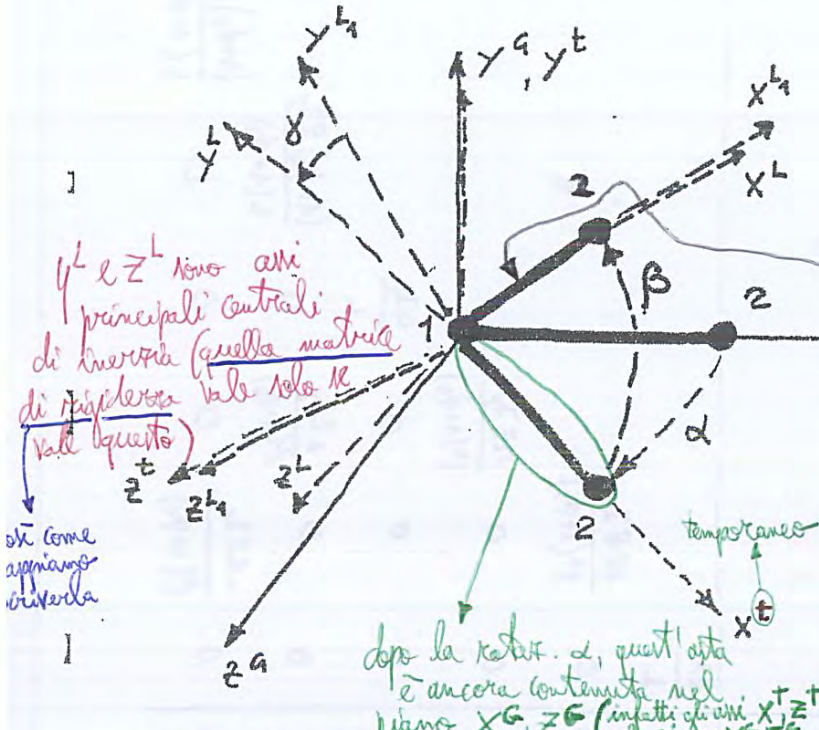 y^L₁
y^G, y^t
x^L₁
y^L
γ
2
x^L
]
y^L e z^L sono assi
principali centrali
di inerzia (quella matrice
di rigidezza vale solo se
vale questo)
1
β
2
α
z^t
z^L₁
z^L
2
così come
sappiamo
scriverla
temporaneo
x^t
]
z^G
dopo la rotaz. α, quest'asta
è ancora contenuta nel
piano x^G, z^G (infatti gli assi x^t z^t